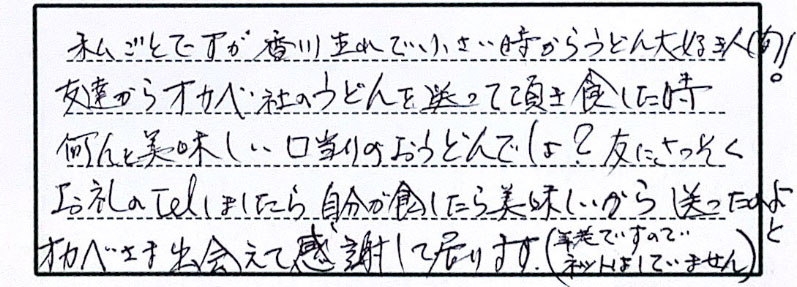 私ごとですが香川生れで小さい時からうどん大好き人間!
友達からオカベ社のうどんを送って頂き食した時
何んと美味しい口当りのおうどんでしょ?友にさっそく
お礼のTelしましたら自分が食したら美味しいから送ったのよと
オカベさま出会えて感謝して居ります。(ですので
ネットはしていません)